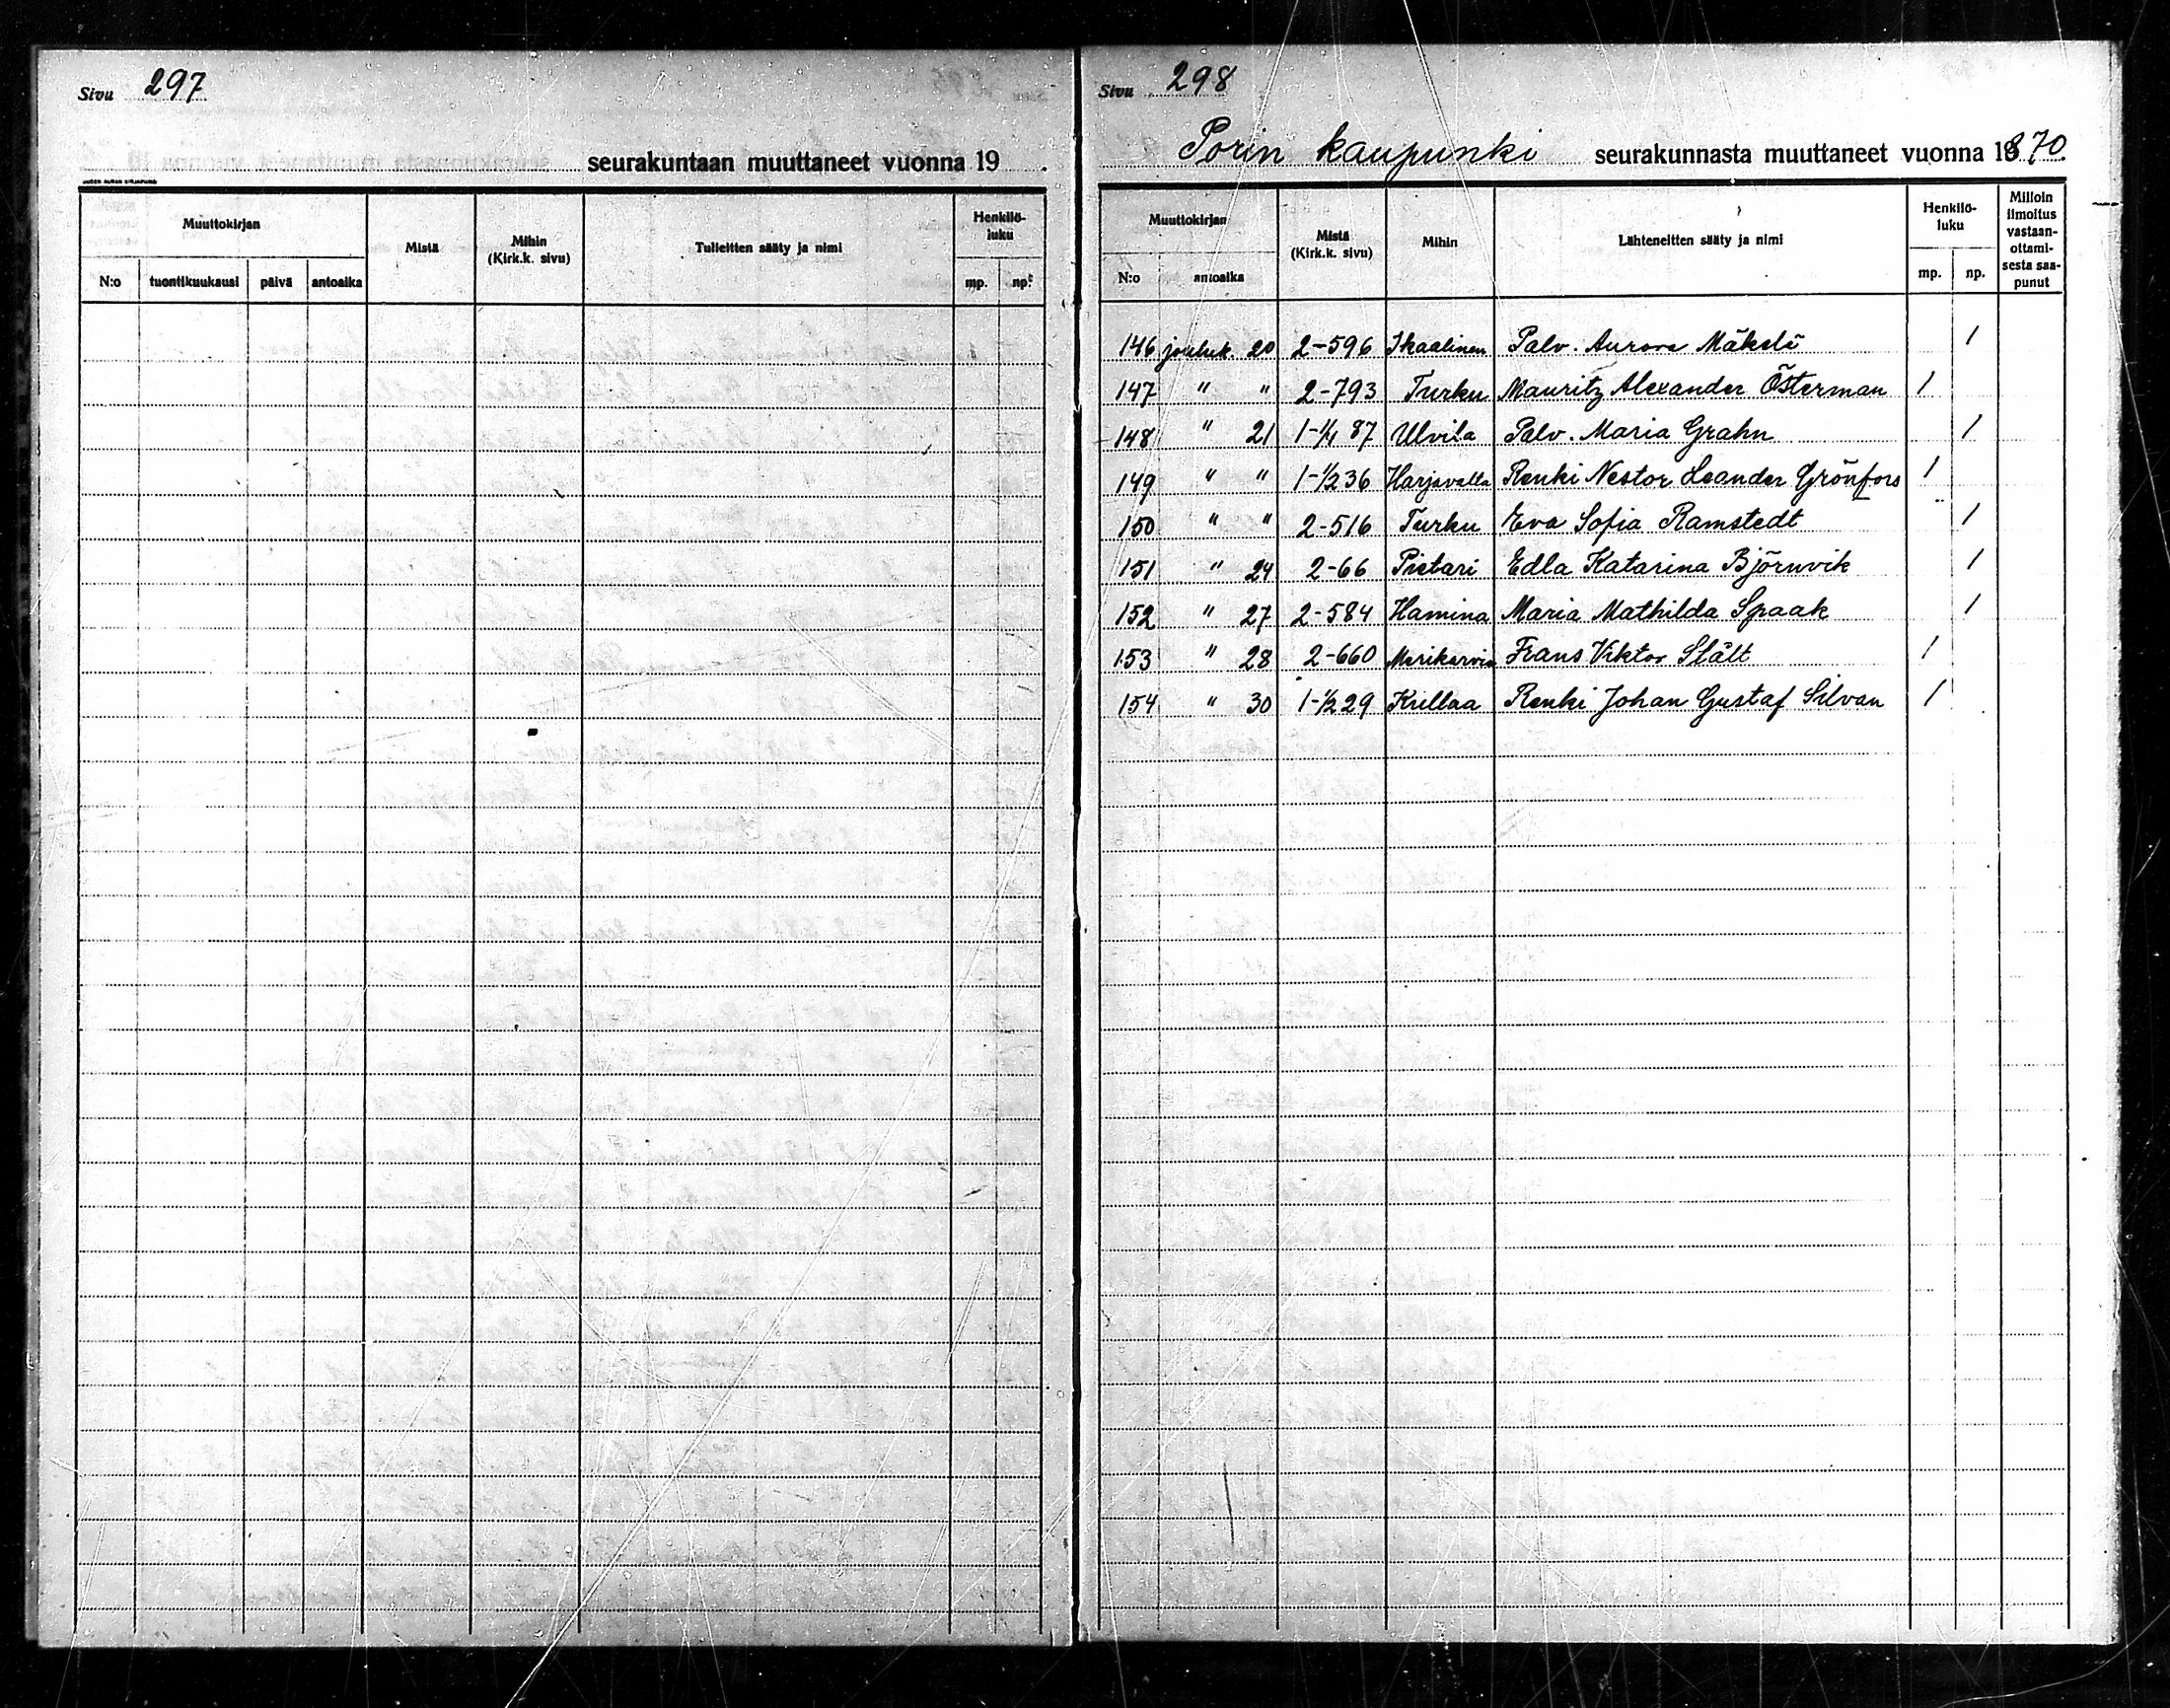 Sivu 297
seurakuntaan muuttaneet vuonna 19 .
Muuttokirjan
Mistä
Mihin (Kirk.k. sivu)
Tulleitten sääty ja nimi
Henkilö-luku
N:o tuontikuukausi päivä antoaika mp. np.
Sivu 298
Porin kaupunki seurakunnasta muuttaneet vuonna 1870.
Muuttokirjan
Mistä (Kirk.k. sivu)
Mihin
Lähteneitten sääty ja nimi
Henkilö-luku
Milloin ilmoitus vastaan-ottami-sesta saa-punut
N:o antoaika mp. np.
146 jouluk. 20 2-596 Ikaalinen Palv. Aurora Mäkelä 1
147 " " 2-793 Turku Mauritz Alexander Österman 1
148 " 21 1-1/1 87 Ulvila Palv. Maria Grahn 1
149 " " 1-1/2 36 Harjavalta Renki Nestor Leander Grönfors 1
150 " " 2-516 Turku Eva Sofia Ramstedt 1
151 " 24 2-66 Pietari Edla Katarina Björnvik 1
152 " 27 2-584 Hamina Maria Mathilda Spaak 1
153 " 28 2-660 Merikarvia Frans Viktor Stält 1
154 " 30 1-1/2 29 Kiillaa Renki Johan Gustaf Silvan 1